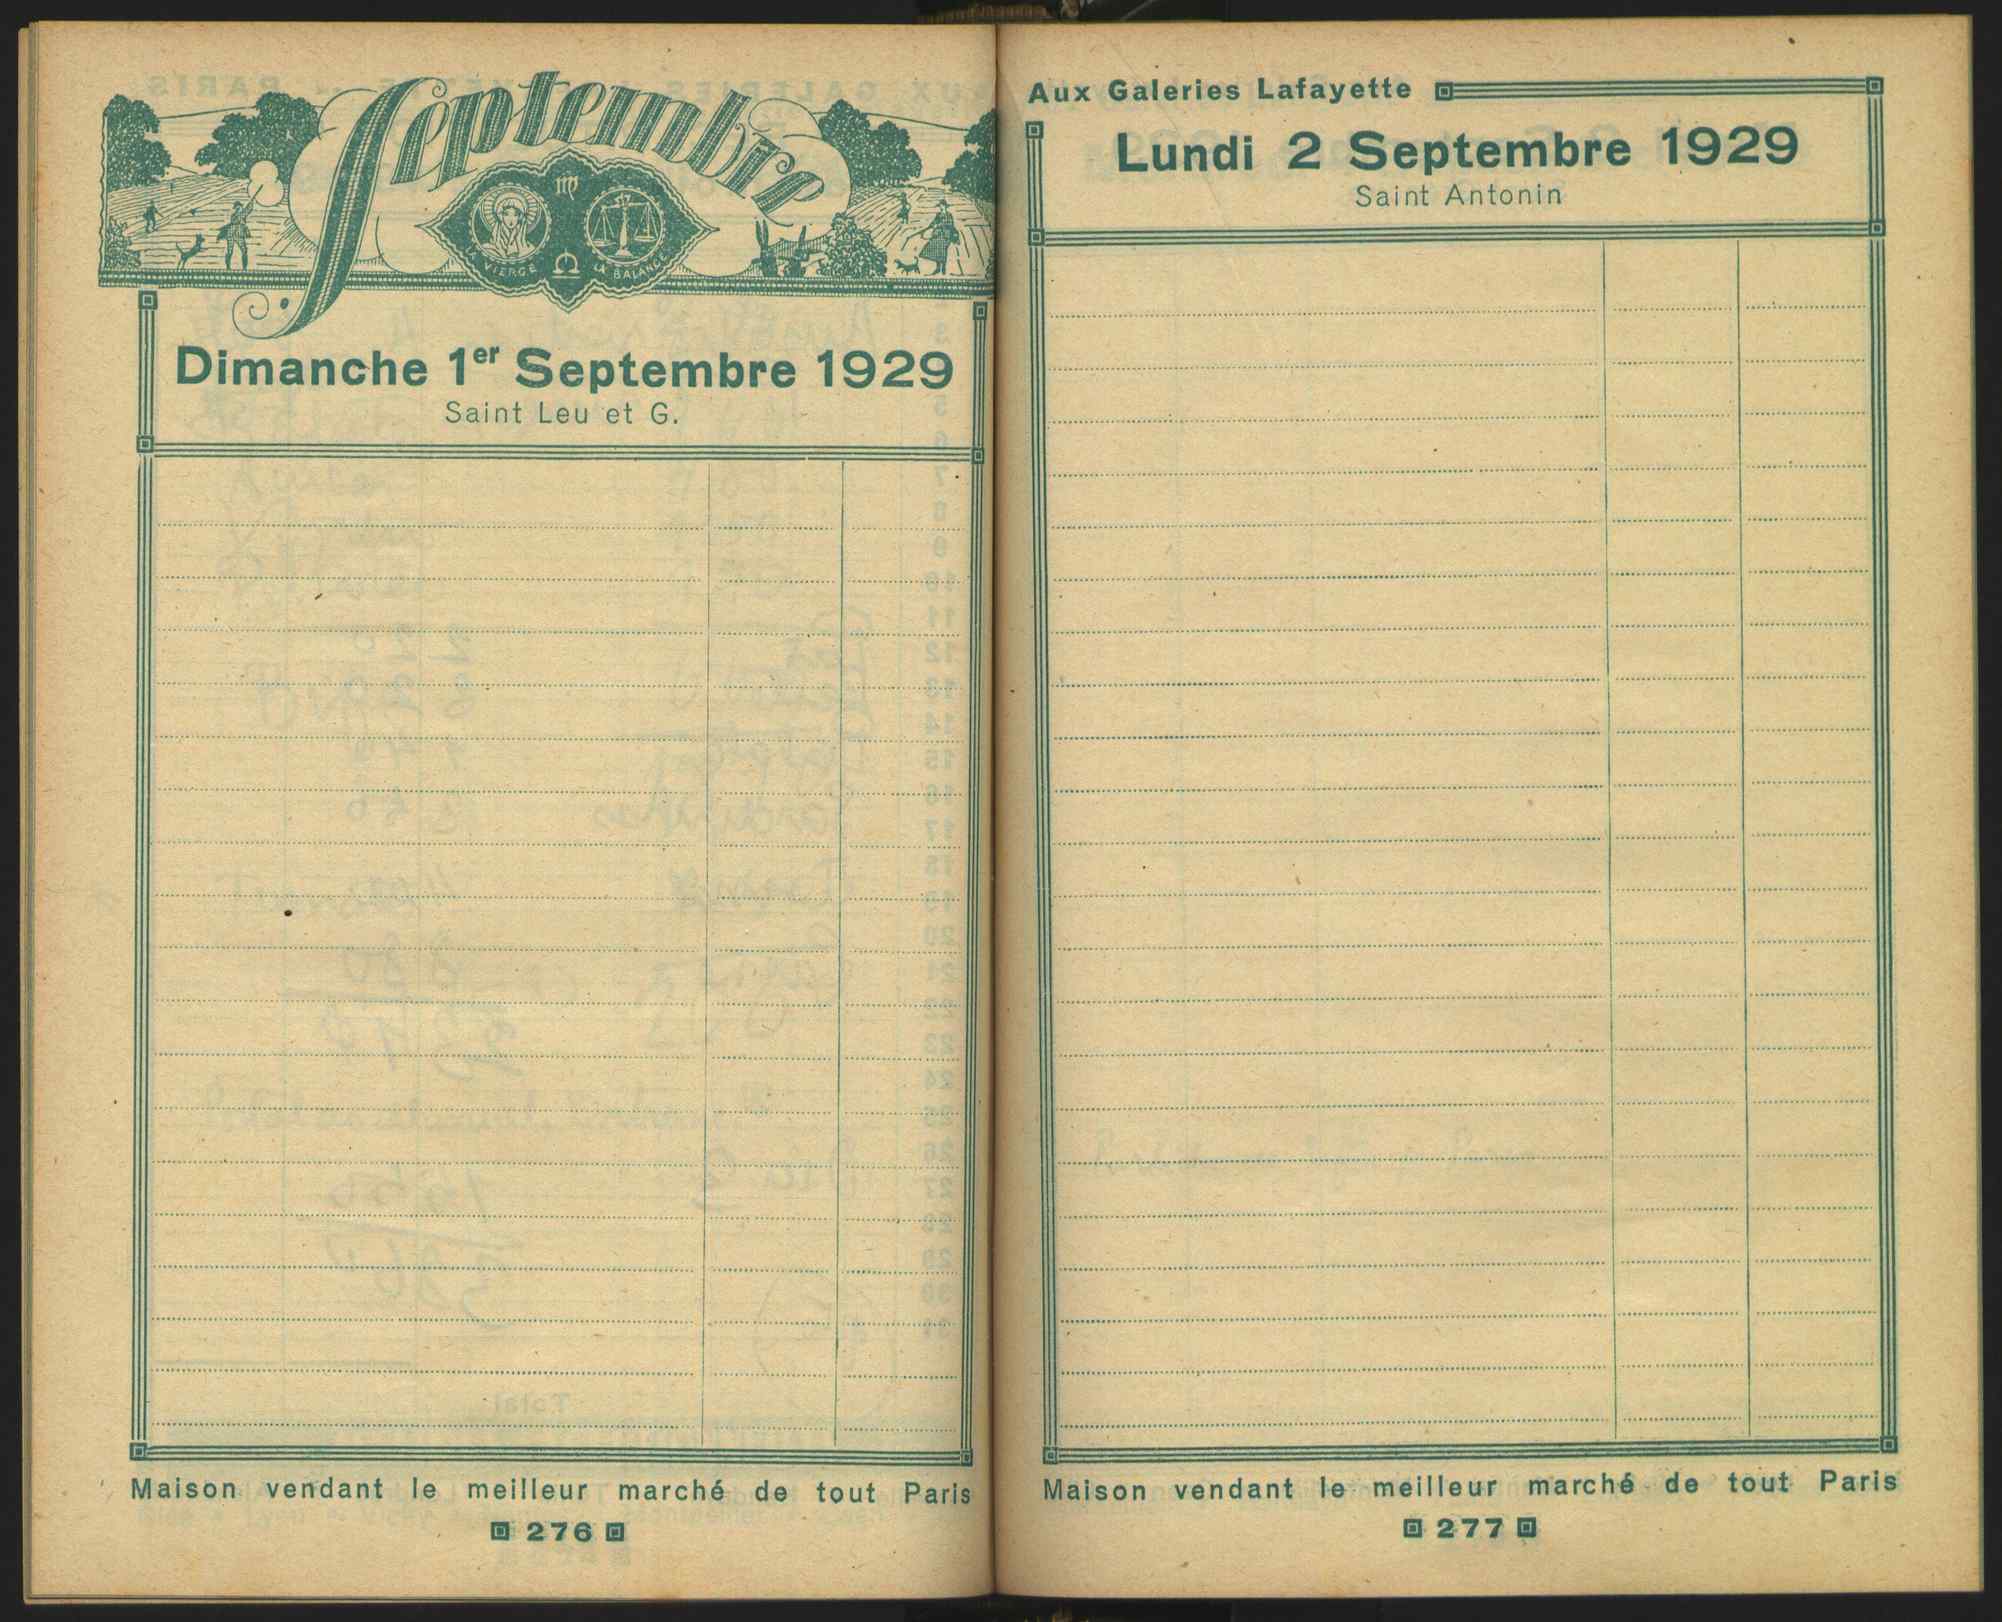 Septembre
♍
LA VIERGE
♎
LA BALANCE
Dimanche 1er Septembre 1929
Saint Leu et G.
Maison vendant le meilleur marché de tout Paris
276
Aux Galeries Lafayette
Lundi 2 Septembre 1929
Saint Antonin
Maison vendant le meilleur marché de tout Paris
277